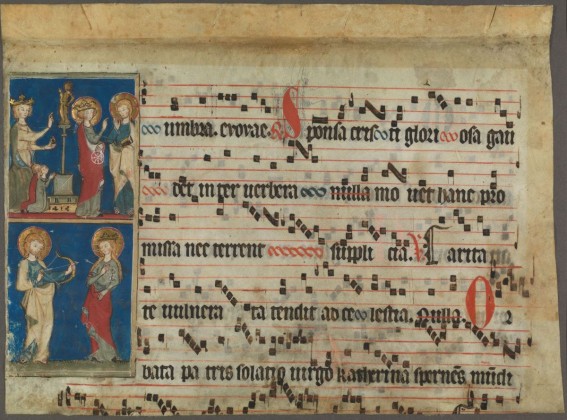 umbra. evovae. Sponsa cristi gloriosa gau
det inter verbera nulla movet hanc pro
missa nec terrent supplicia. Carita
te vulnerata tendit ad celestia. Nulla. O
bata patris solatio virgo katherina spernes mundi